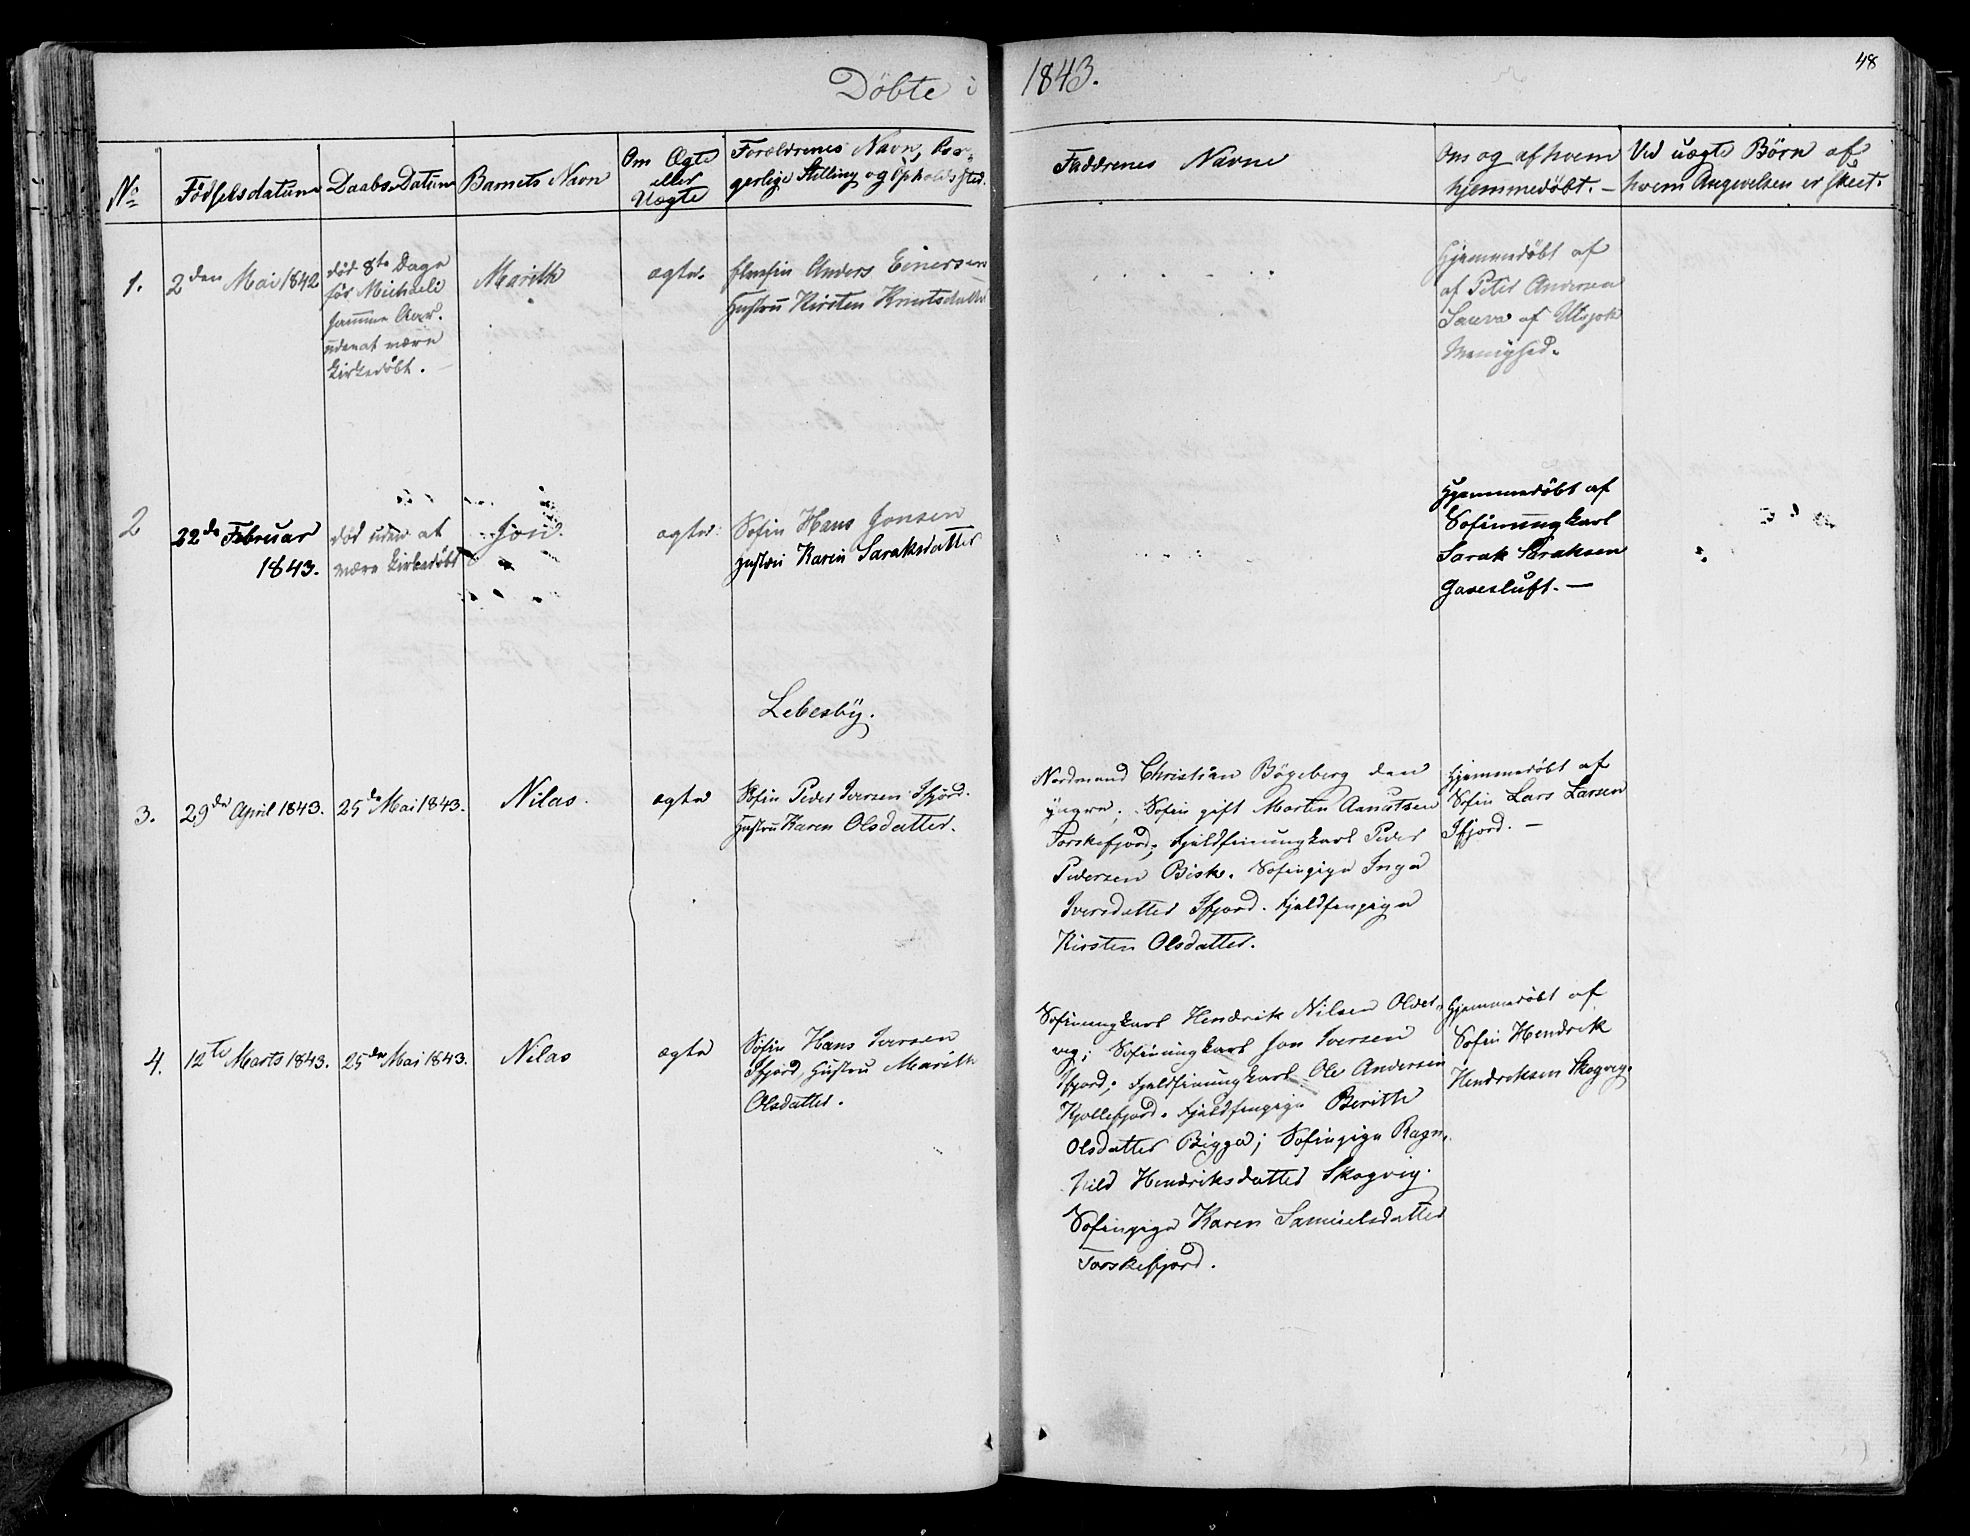 Döbte i 1843.
48
No
Födselsdatum
Daabs Datum
Barnets Navn
Om Ægte
eller
Uægte
Forældrenes Navn, Bor-
gerlige Stilling og Opholds Sted.
Faddrenes Navne
Om og af hvem
hjemmedöbt. –
Ved uægte Börn af
hvem Angivelsen er skeet.
1.
2den Mai 1842
död 8te Dage
för Michaeli
samme Aar.
uden at være
kirkedöbt. –
Marith
ægte.
Anders Einersen
Hustru Kirsten Knutsdatter
Hjemmedöbt af
af Peter Andersen
af Utsjok
Menighed.
2
22de Februar
1843.
död uden at
være kirkedöbt
Jon.
ægte.
Sofin Hans Jonsen
Hustru Karen Saraksdatter
Hjemmedöbt af
Sofinungkarl
Sarak Saraksen
Gavesluft. –
Lebesby.
3.
29de April 1843.
25de Mai 1843.
Nilas.
ægte
Sofin Peder Iversen Ifjord.
Hustru Karen Olsdatter.
Nordmand Christian Bögeberg den
yngre; Sofin gift Morten Aanutsen
Torskefjord; Fjeldfinungkarl Peder
Pedersen Bisk. Sofinpige Inga
Iversdatter Ifjord. Fjeldfinpige
Kirsten Olsdatter.
Hjemmedöbt af
Sofin Lars Larsen
Ifjord. –
4.
12te Marts 1843.
25de Mai 1843.
Nilas
ægte
Söfin Hans Iversen
Ifjord, Hustru Marith
Olsdatter.
Sofinungkarl Hendrik Nilsen Oldet-
vig; Sofinungkarl Jon Iversen
Ifjord; Fjeldfinungkarl Ole Andersen
Kjöllefjord. Fjeldfinpige Berithe
Olsdatter Bigga; Sofinpige Ragn-
hild Hendriksdatter Skogvig.
Sofinpige Karen Samuelsdatter
Torskefjord.
Hjemmedöbt af
Sofin Hendrik
Hendriksen Skogvig.